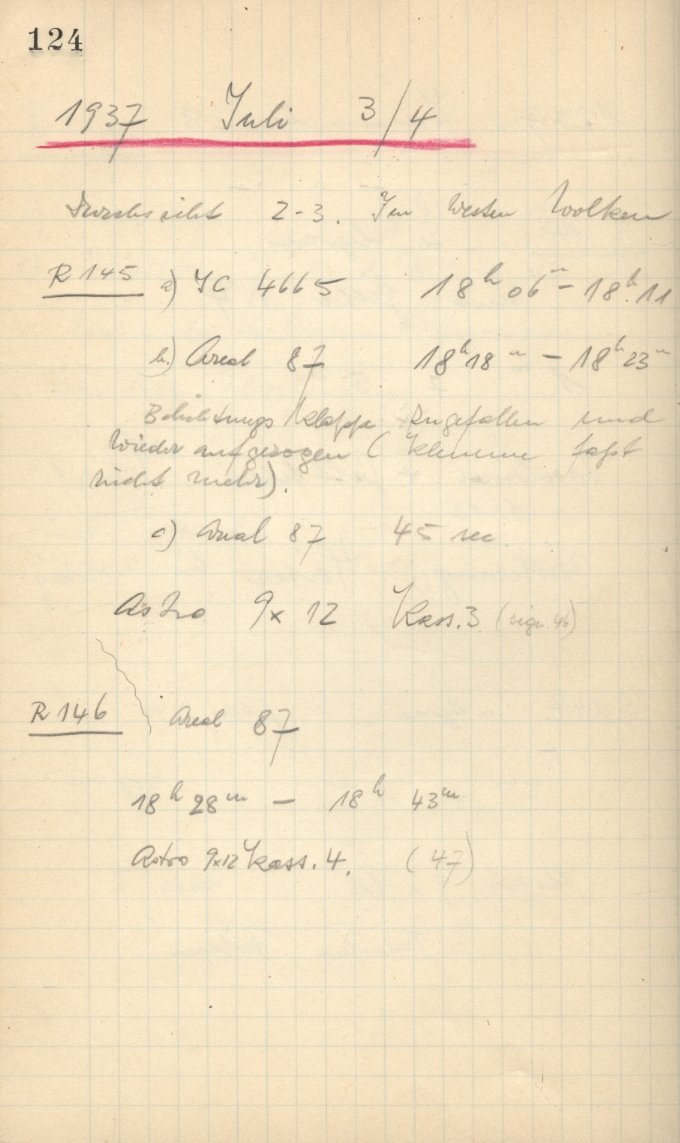 124
1937 Juli 3/4
Durchsicht 2-3. Im Westen Wolken
R 145 a) IC 4665 18h 06m - 18h 11
b.) Areal 87 18h 18m - 18h 23m
Belichtungsklappe zugefallen und
wieder aufgezogen (Klemme faßt
nicht mehr).
c) Areal 87 45 sec
Astro 9x12 Kass. 3 (sign. 46)
R 146 Areal 87
18h 28m - 18h 43m
Astro 9x12 Kass. 4. (47)